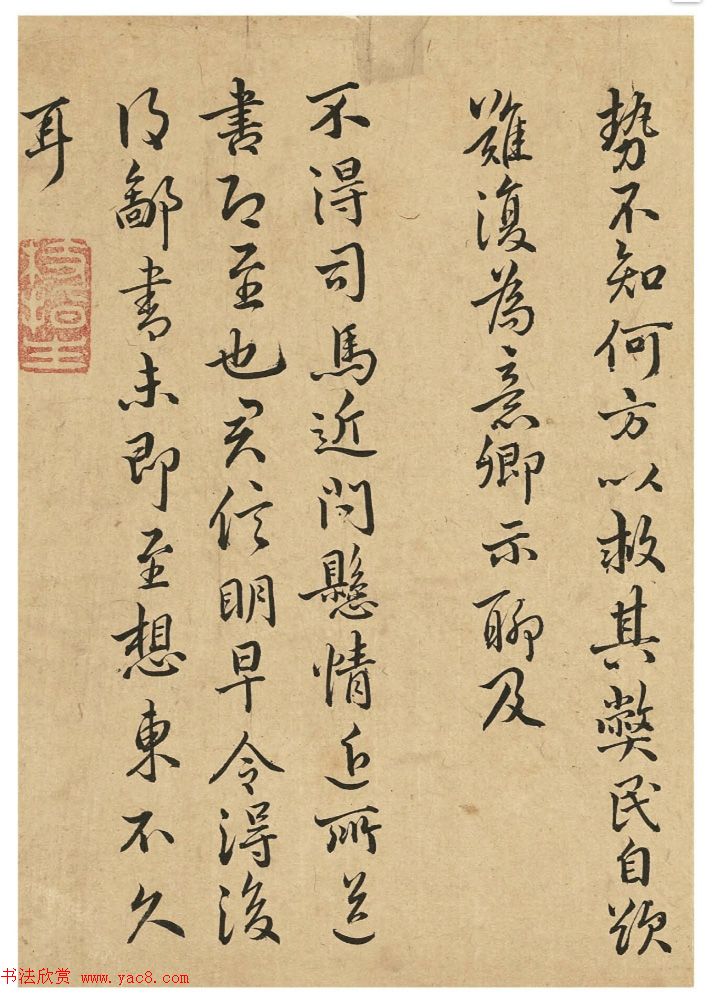 勢不知何方以救其弊民自欲
難復為意卿示聊及
不得司馬近問懸情近所送
書即至也君信明早令得後
得鄙書未即至想東不久
耳
书法欣赏 www.yac8.com